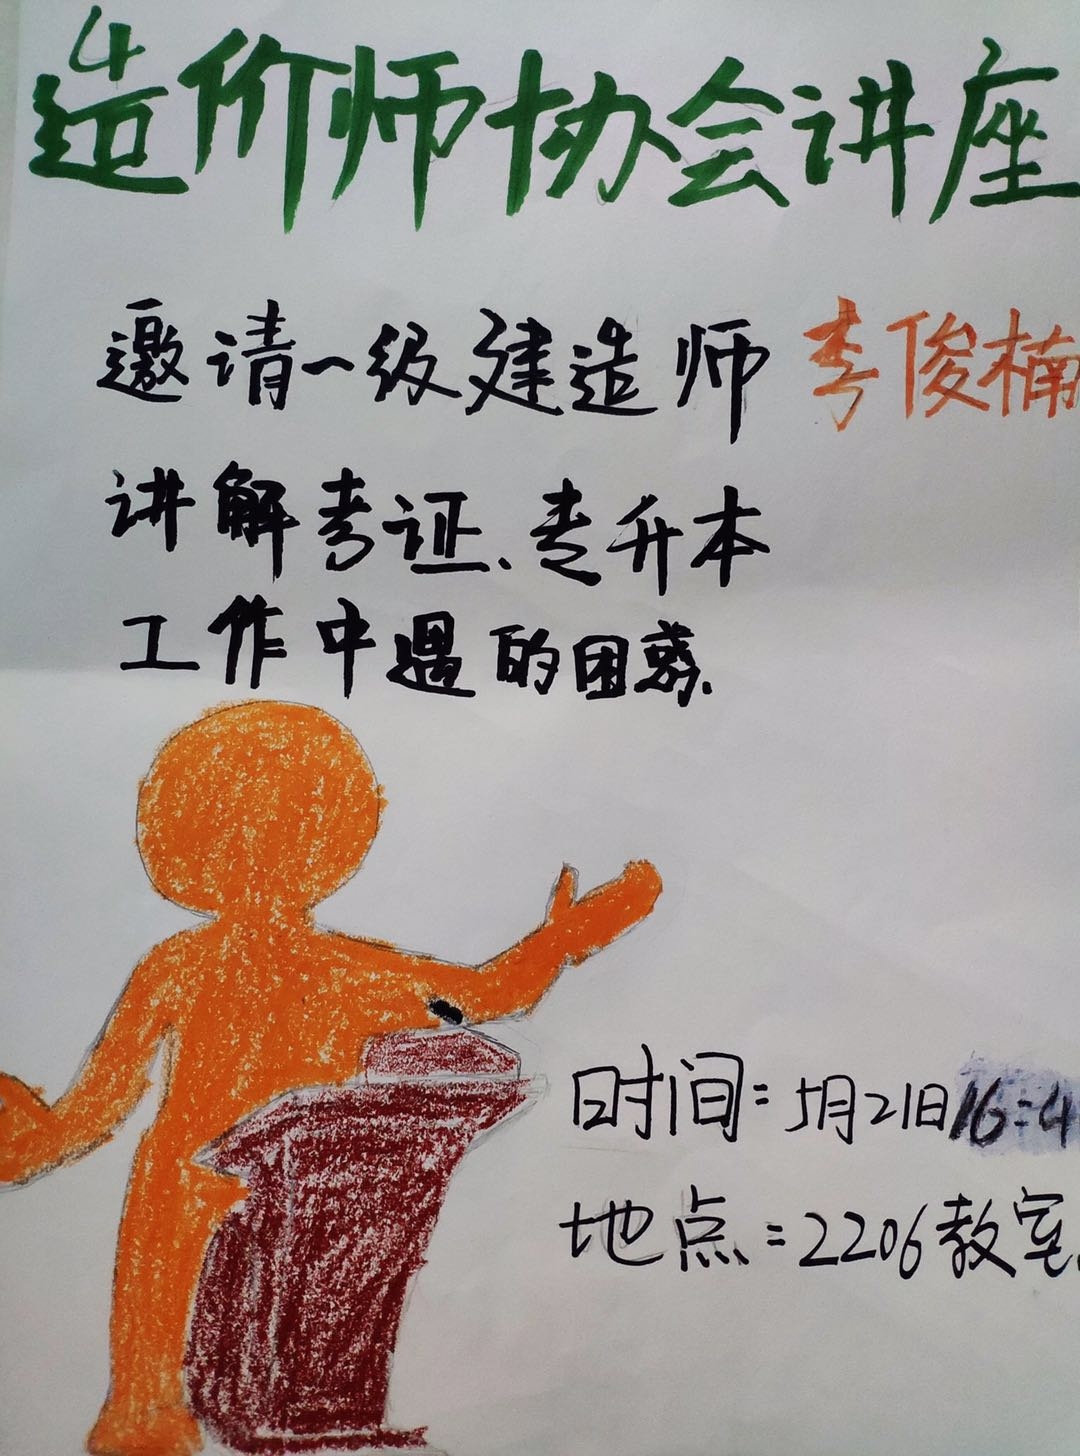 造价师协会讲座
邀请一级建造师 李俊楠
讲解考证、专升本
工作中遇的困惑、
时间：5月21日16:4
地点：2206教室